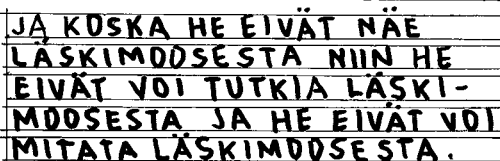 JA KOSKA HE EIVÄT NÄE
LÄSKIMOOSESTA NIIN HE
EIVÄT VOI TUTKIA LÄSKI-
MOOSESTA JA HE EIVÄT VOI
MITATA LÄSKIMOOSESTA.